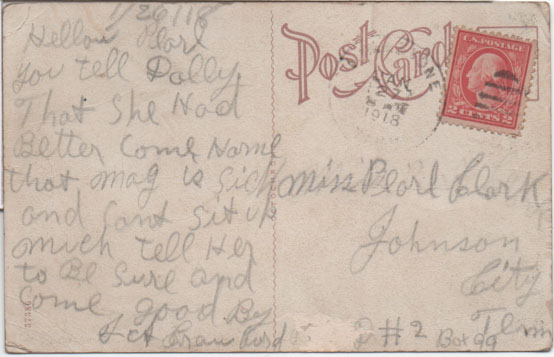 1/26/18
Hellow Pearl
you tell Dolly
That She Had
Better Come Home
that mag is Sick
and Cant Sit up
much tell Her
to Be Sure and
Come good By
Crawford
Post Card
1918
U.S. POSTAGE
2 CENTS 2
Miss Pearl Clark
Johnson
City
Tenn
#2 Box 99